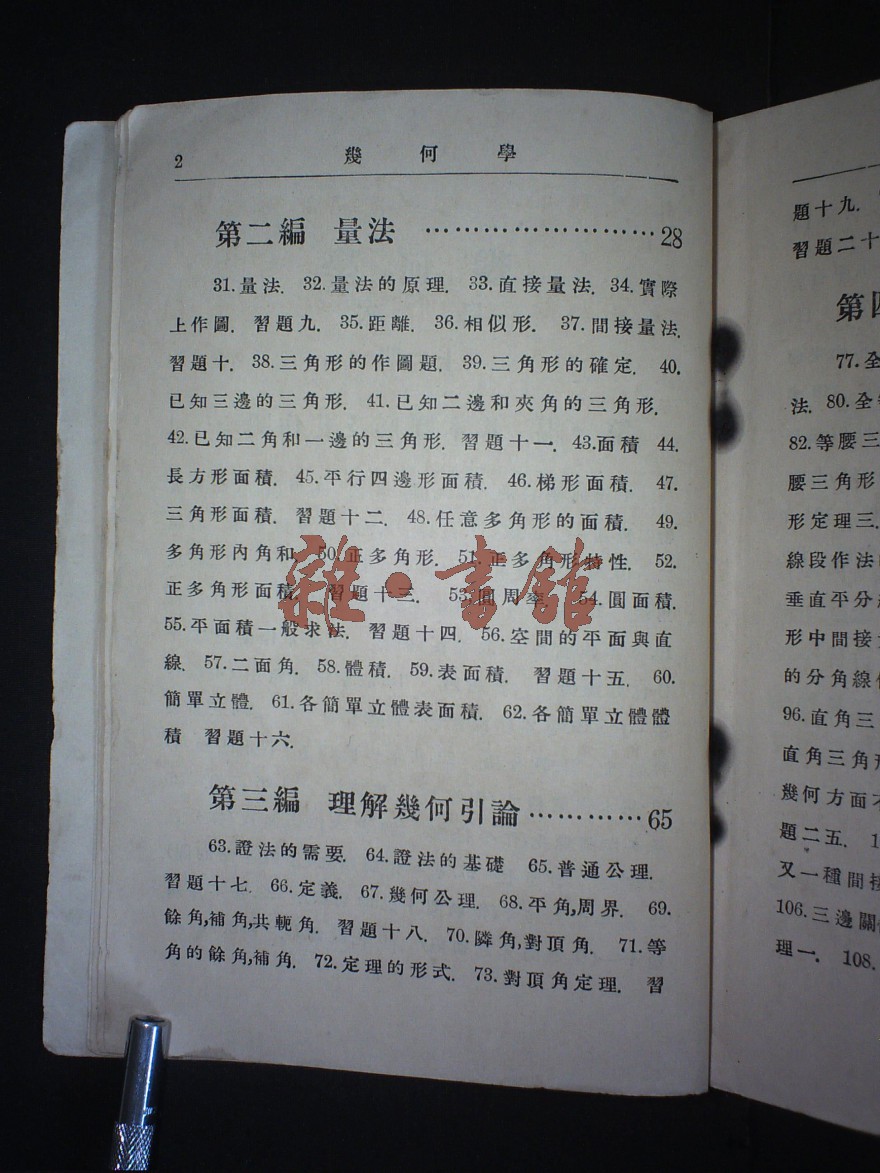 2 幾何學
第二編 量法 ……………………28
31.量法. 32.量法的原理. 33.直接量法. 34.實際
上作圖. 習題九. 35.距離. 36.相似形. 37.間接量法.
習題十. 38.三角形的作圖題. 39.三角形的確定. 40.
已知三邊的三角形. 41.已知二邊和夾角的三角形.
42.已知二角和一邊的三角形. 習題十一. 43.面積 44.
長方形面積. 45.平行四邊形面積. 46.梯形面積. 47.
三角形面積. 習題十二. 48.任意多角形的面積. 49.
多角形內角和. 50.正多角形. 51.正多角形特性. 52.
正多角形面積. 習題十三. 53.圓周率. 54.圓面積.
55.平面積一般求法. 習題十四. 56.空間的平面與直
線. 57.二面角. 58.體積. 59.表面積. 習題十五. 60.
簡單立體. 61.各簡單立體表面積. 62.各簡單立體體
積 習題十六.
第三編 理解幾何引論…………65
63.證法的需要. 64.證法的基礎 65.普通公理.
習題十七. 66.定義. 67.幾何公理. 68.平角,周界. 69.
餘角,補角,共軛角. 習題十八. 70.隣角,對頂角. 71.等
角的餘角,補角. 72.定理的形式. 73.對頂角定理. 習
雜·書館
題十九.
習題二十
第四
77.全
法. 80.全等
82.等腰三
腰三角形
形定理三.
線段作法
垂直平分
形中間接
的分角線
96.直角三
直角三角形
幾何方面不
題二五.
又一種間接
106.三邊關
理一. 108.